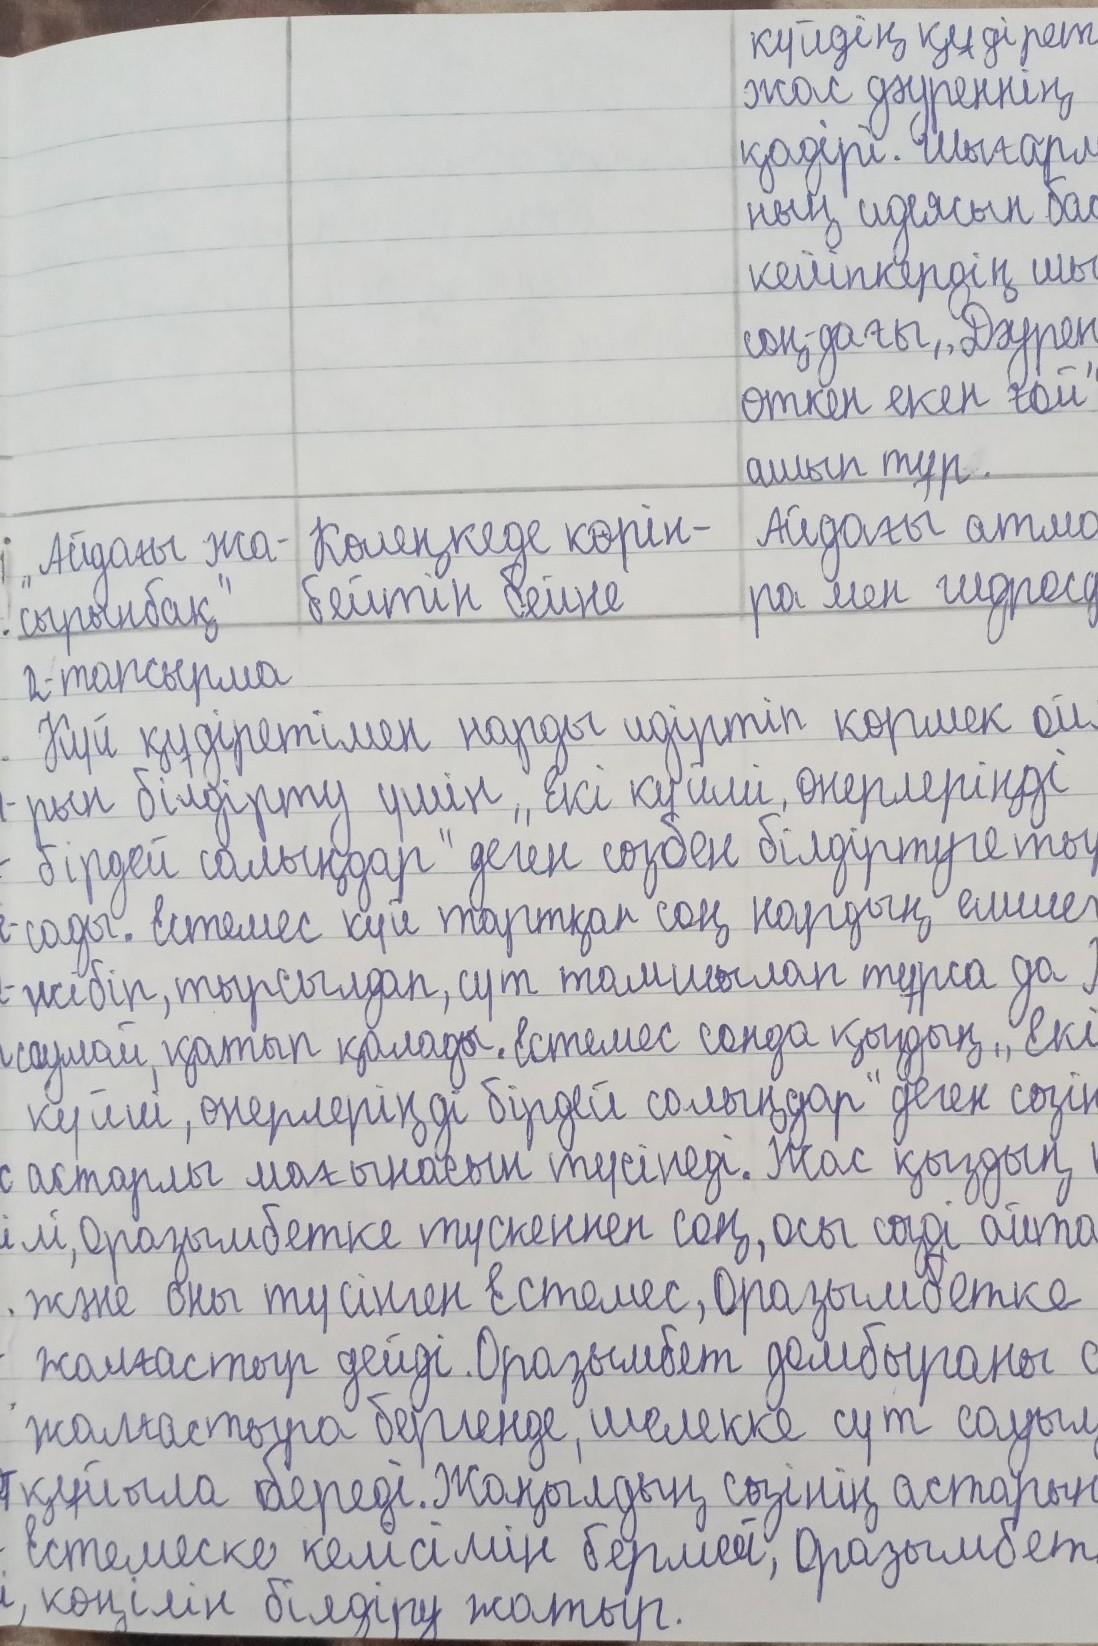 күйдің құдірет
жас дәуреннің
қадірі. Шығарм
ның идеясын бас
кейіпкердің шы
соң-дағы, „Дәурен
өткен екен ғой"
ашып тұр.
„Айдағы жа- Көлеңкеде көрін- Айдағы атмо
сырынбақ" бейтін бейне ра мен гидросф
2-тапсырма
Күй құдіретімен нарды идіртіп көрмек ой
рын білдірту үшін „Екі күйші, өнерлеріңді
бірдей салыңдар" деген сөзбен білдіртуге ты
сады. Естемес күй тартқан соң нардың емшег
жібіп, тырсылдап, сүт тамшылап тұрса да
саумай, қатып қалады. Естемес сонда қыздың „Екі
күйші, өнерлеріңді бірдей салыңдар" деген сөзін
астарлы мағынасын түсінеді. Жас қыздың
Оразымбетке түскеннен соң, осы сөзді айта
және оны түсінген Естемес, Оразымбетке
жалғастыр дейді. Оразымбет домбыраны
жалғастыра бергенде, шелекке сүт сауыл
құйыла береді. Жаңылдың сөзінің астарын
Естемеске келісімін бермей, Оразымбет
көңілін білдіру жатыр.